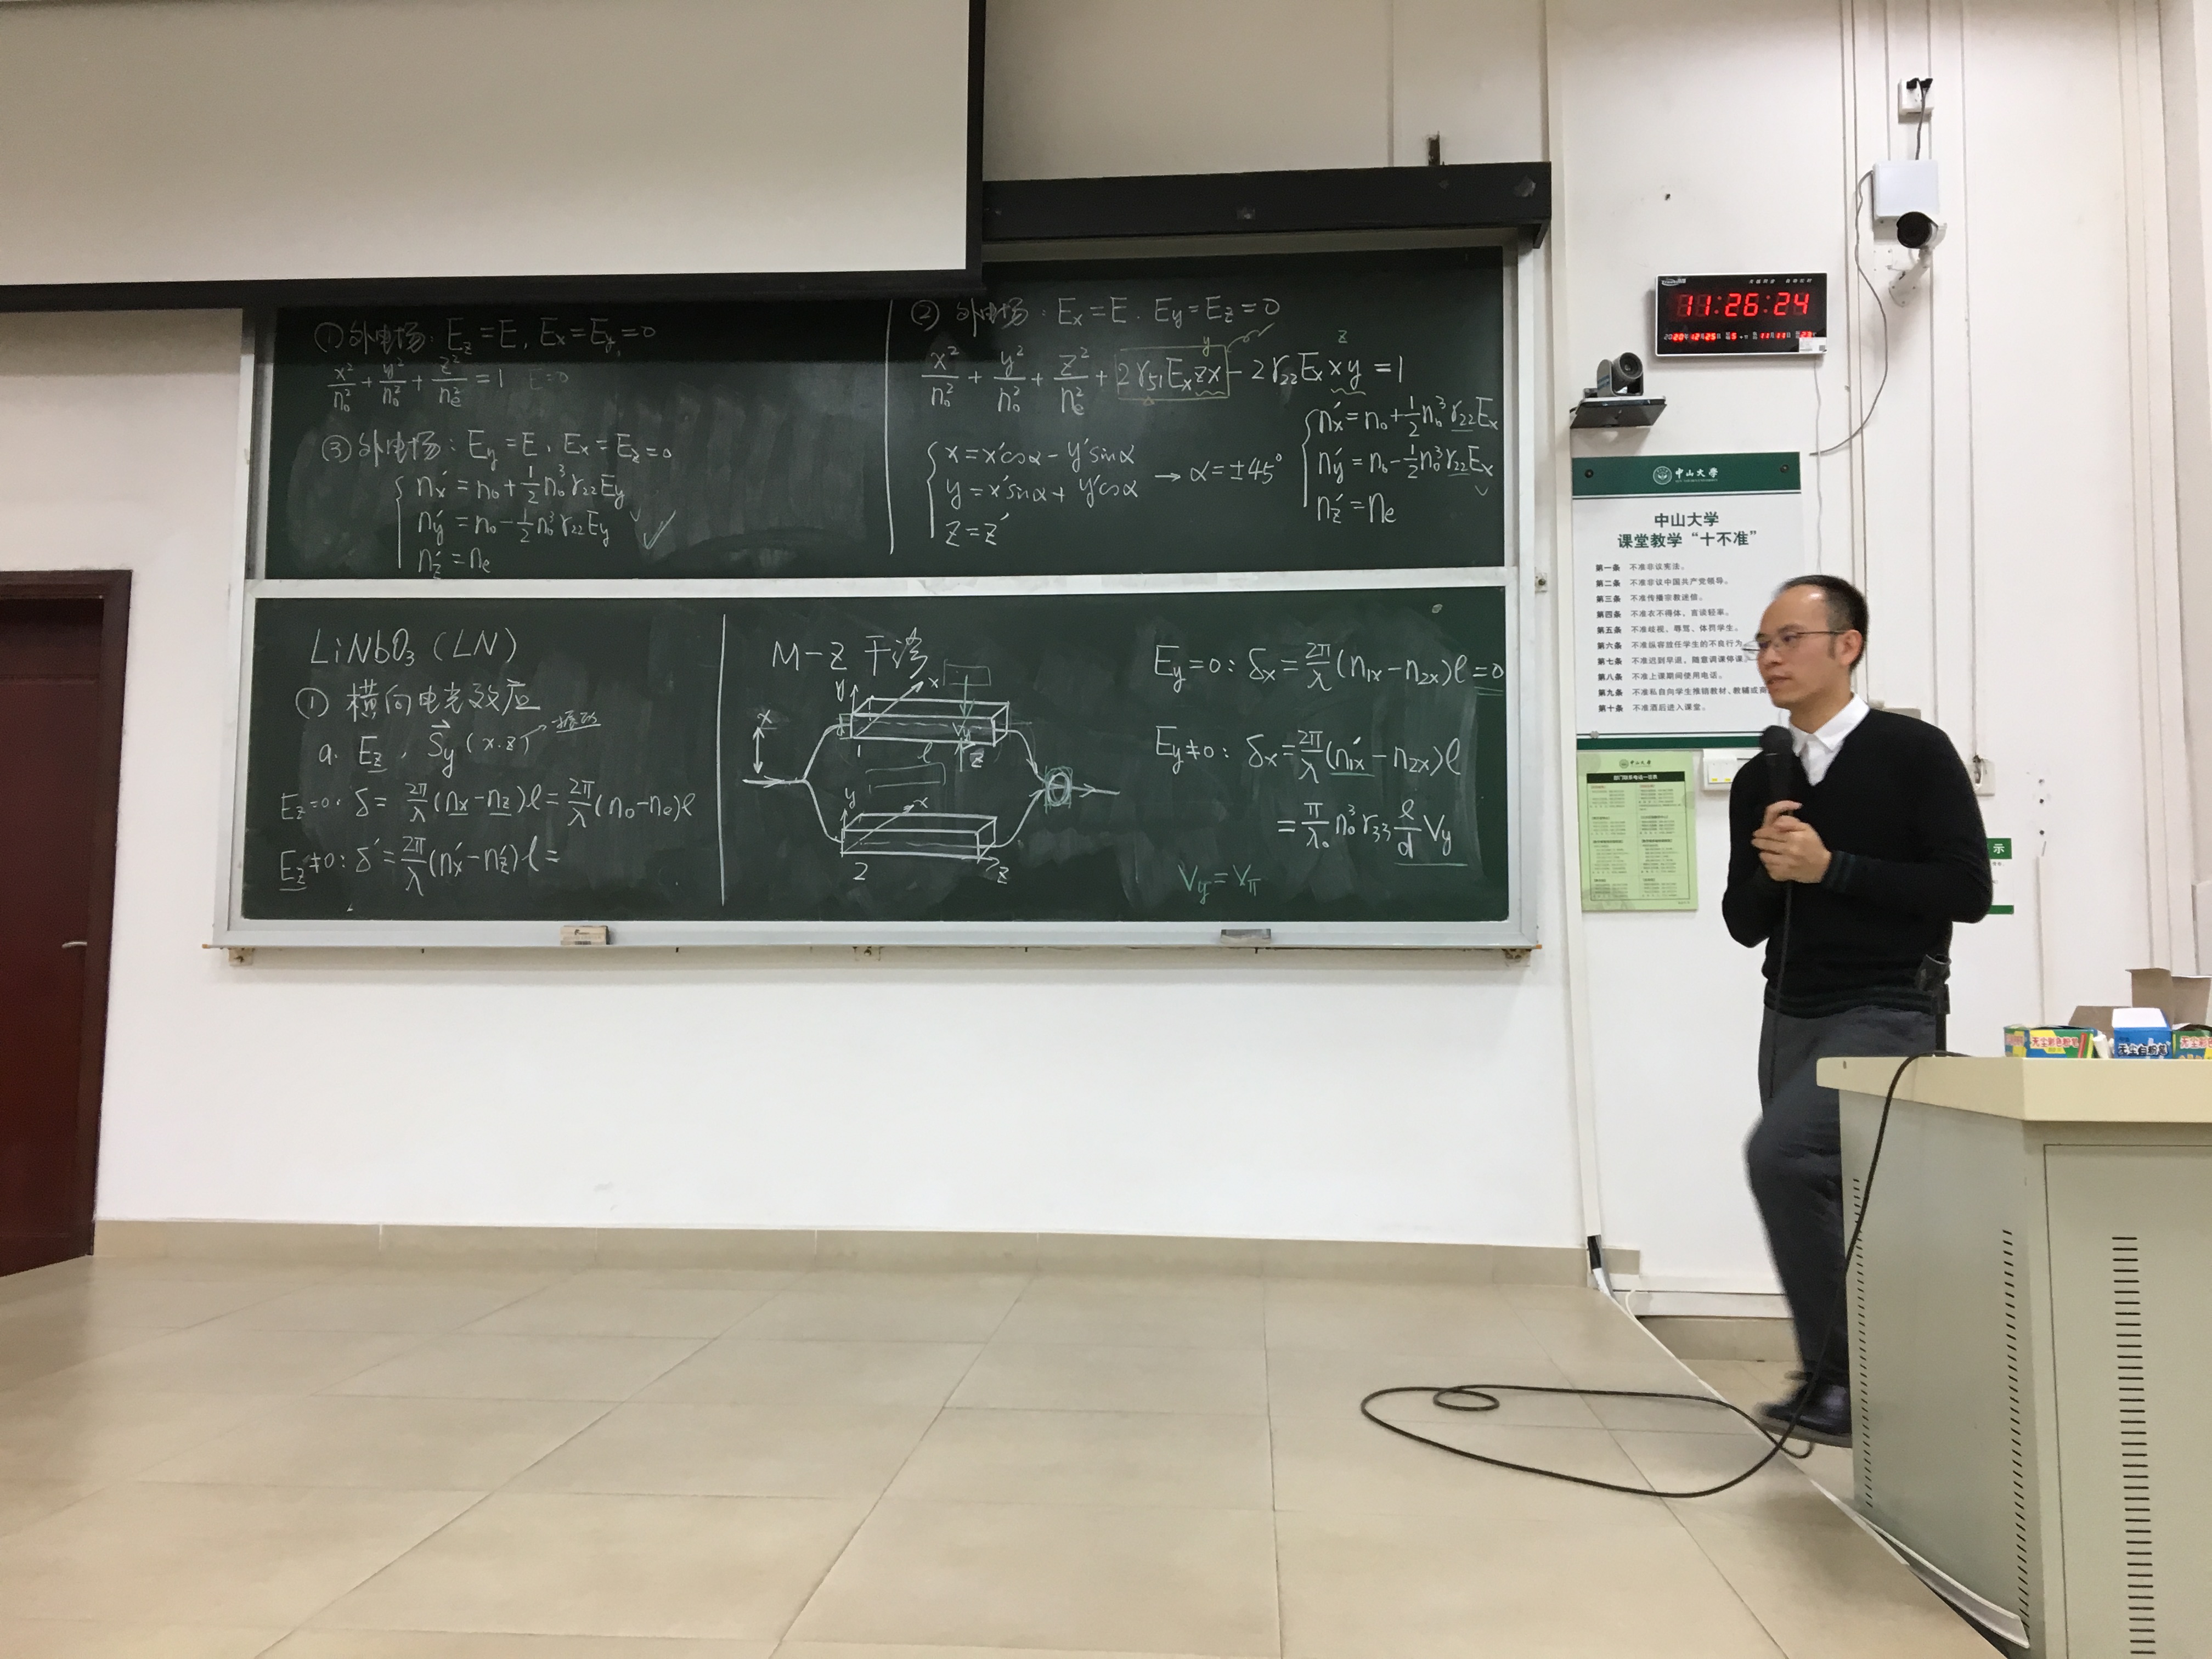 ① 外电场: E_z=E, E_x=E_y=0
x²/n₀² + y²/n₀² + z²/n_e² = 1 E=0
③ 外电场: E_y=E, E_x=E_z=0
n_x′=n₀+½n₀³r₂₂E_y
n_y′=n₀-½n₀³r₂₂E_y
n_z′=n_e
② 外电场: E_x=E. E_y=E_z=0
y
z
x²/n₀² + y²/n₀² + z²/n_e² + 2r₅₁E_x zx - 2r₂₂E_x xy = 1
x=x′cosα-y′sinα
y=x′sinα+y′cosα → α=±45°
z=z′
n_x′=n₀+½n₀³r₂₂E_x
n_y′=n₀-½n₀³r₂₂E_x
n_z′=n_e
LiNbO₃ (LN)
① 横向电光效应
a. E_z, S⃗_y (x.z) → 振动
E_z=0: δ=2π/λ(n_x-n_z)l=2π/λ(n₀-n_e)l
E_z≠0: δ′=2π/λ(n_x′-n_z′)l=
M-Z 干涉
y x
x
1 l V_y z
y x
2 z
E_y=0: δ_x=2π/λ(n₁ₓ-n₂ₓ)l=0
E_y≠0: δ_x=2π/λ(n₁ₓ′-n₂ₓ)l
=π/λ₀ n₀³r₃₃ l/d V_y
V_y=V_π
11:26:24
中山大学
中山大学
课堂教学“十不准”
第一条 不准非议宪法。
第二条 不准非议中国共产党领导。
第三条 不准传播宗教迷信。
第四条 不准衣不得体、言读轻率。
第五条 不准歧视、辱骂、体罚学生。
第六条 不准纵容放任学生的不自行为
第七条 不准迟到早退、随意调课停课。
第八条 不准上课期间使用电话。
第九条 不准私自向学生推销教材、教辅或商
第十条 不准酒后进入课堂。
中山大学
部门联系电话一览表
示
无尘彩色粉笔
无尘白粉笔
无尘彩色